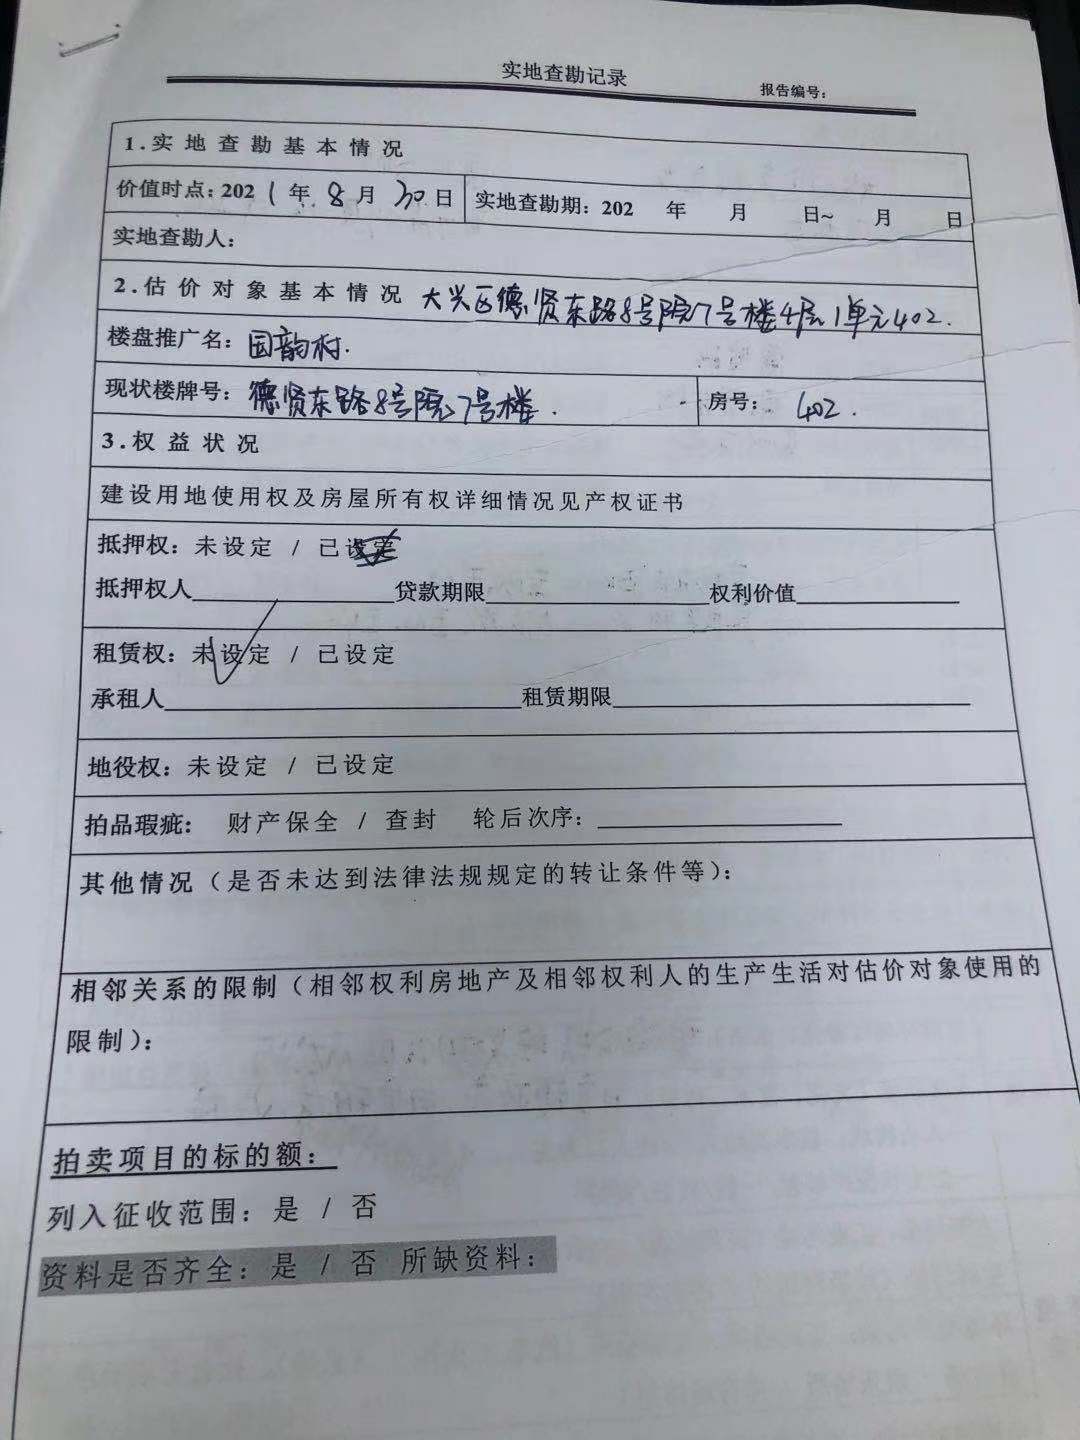 实地查勘记录
报告编号：
1.实地查勘基本情况
价值时点：2021年8月30日 实地查勘期：202 年 月 日~ 月 日
实地查勘人：
2.估价对象基本情况 大兴区德贤东路8号院7号楼4层1单元402.
楼盘推广名：国韵村.
现状楼牌号：德贤东路8号院7号楼. 房号：402.
3.权益状况
建设用地使用权及房屋所有权详细情况见产权证书
抵押权：未设定 / 已设定
抵押权人 贷款期限 权利价值
租赁权：未设定 / 已设定
承租人 租赁期限
地役权：未设定 / 已设定
拍品瑕疵： 财产保全 / 查封 轮后次序：
其他情况（是否未达到法律法规规定的转让条件等）：
相邻关系的限制（相邻权利房地产及相邻权利人的生产生活对估价对象使用的
限制）：
拍卖项目的标的额：
列入征收范围：是 / 否
资料是否齐全：是 / 否 所缺资料：